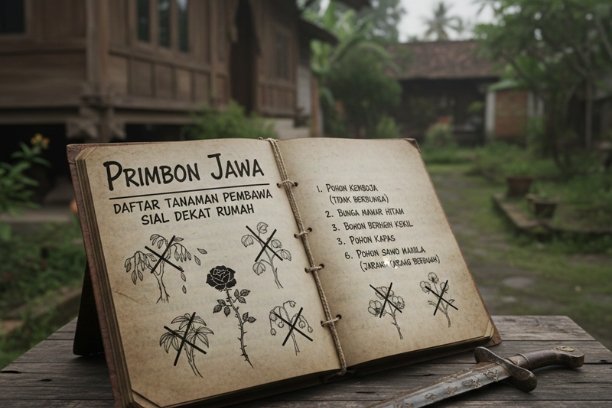 PRIMBON JAWA
DAFTAR TANAMAN PEMBAWA
SIAL DEKAT RUMAH
1. POHON KEMBOJA
(TIDAK BERBUNGA)
2. BUNGA MAWAR HITAM
3. BOHON BERINGIN KECIL
3. POHON KAPAS
6. POHON SAWO MANILA
(JARANG BERBUAH)